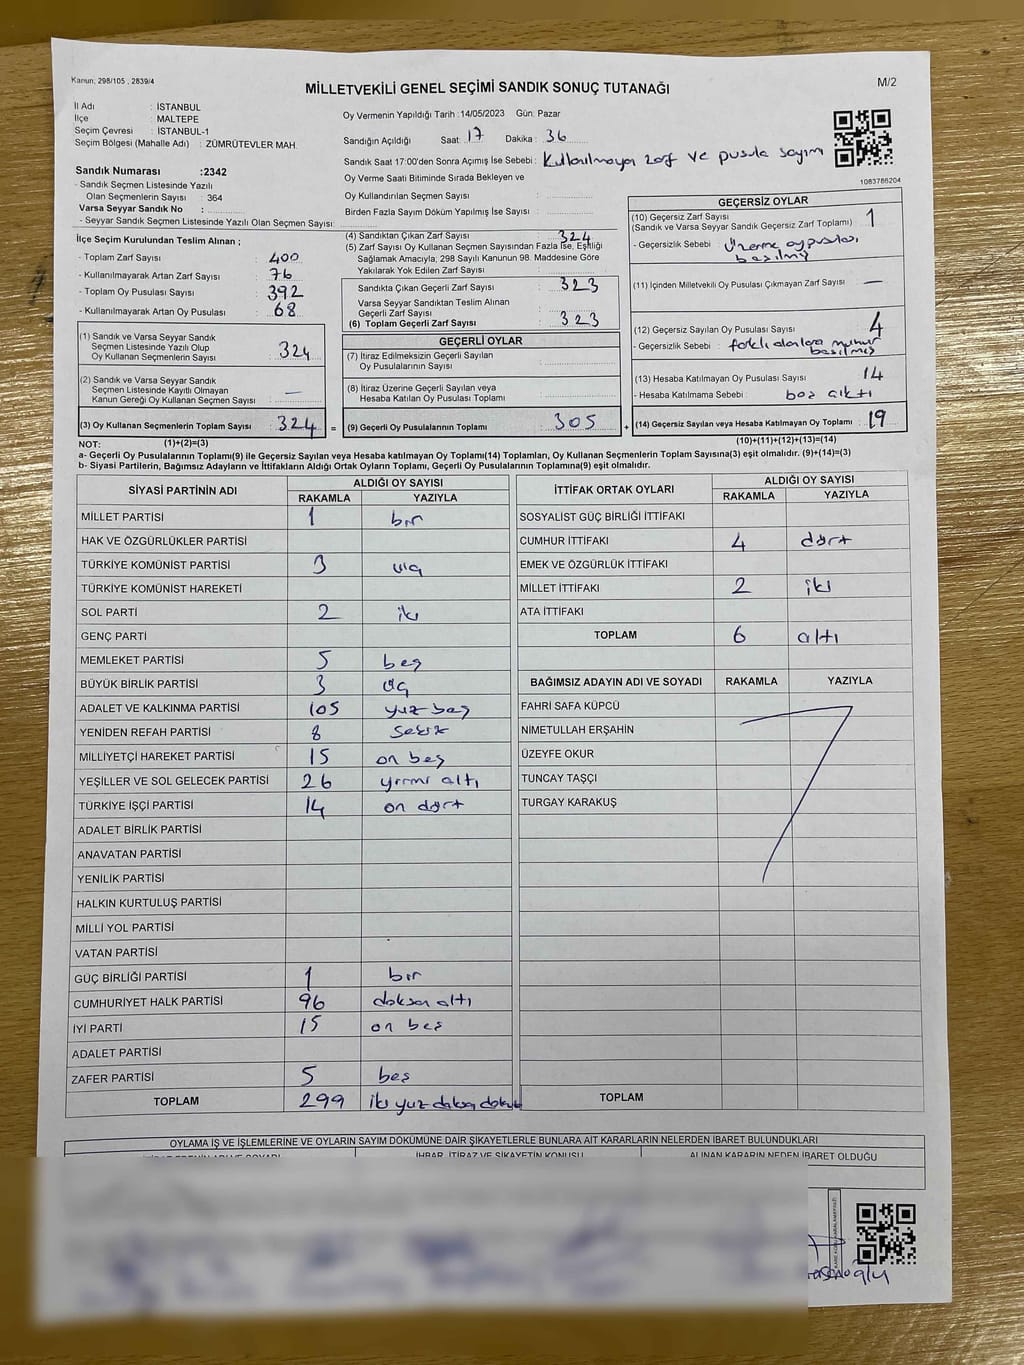 Kanun; 298/105 , 2839/4
MİLLETVEKİLİ GENEL SEÇİMİ SANDIK SONUÇ TUTANAĞI
M/2
İl Adı : İSTANBUL
İlçe : MALTEPE
Seçim Çevresi : İSTANBUL-1
Seçim Bölgesi (Mahalle Adı) : ZÜMRÜTEVLER MAH.
Oy Vermenin Yapıldığı Tarih : 14/05/2023 Gün: Pazar
Sandığın Açıldığı Saat : 17 Dakika : 36
Sandık Saat 17:00'den Sonra Açımış İse Sebebi : Kullanılmayan zarf ve pusula sayım
Oy Verme Saati Bitiminde Sırada Bekleyen ve
Oy Kullandırılan Seçmen Sayısı :
Birden Fazla Sayım Döküm Yapılmış İse Sayısı :
1083786204
Sandık Numarası :2342
- Sandık Seçmen Listesinde Yazılı
Olan Seçmenlerin Sayısı : 364
Varsa Seyyar Sandık No :
- Seyyar Sandık Seçmen Listesinde Yazılı Olan Seçmen Sayısı :
İlçe Seçim Kurulundan Teslim Alınan ;
- Toplam Zarf Sayısı : 400
- Kullanılmayarak Artan Zarf Sayısı : 76
- Toplam Oy Pusulası Sayısı : 392
- Kullanılmayarak Artan Oy Pusulası : 68
(1) Sandık ve Varsa Seyyar Sandık
Seçmen Listesinde Yazılı Olup
Oy Kullanan Seçmenlerin Sayısı : 324
(2) Sandık ve Varsa Seyyar Sandık
Seçmen Listesinde Kayıtlı Olmayan
Kanun Gereği Oy Kullanan Seçmen Sayısı : —
(3) Oy Kullanan Seçmenlerin Toplam Sayısı : 324 =
(4) Sandıktan Çıkan Zarf Sayısı : 324
(5) Zarf Sayısı Oy Kullanan Seçmen Sayısından Fazla İse, Eşitliği
Sağlamak Amacıyla; 298 Sayılı Kanunun 98. Maddesine Göre
Yakılarak Yok Edilen Zarf Sayısı :
Sandıkta Çıkan Geçerli Zarf Sayısı : 323
Varsa Seyyar Sandıktan Teslim Alınan
Geçerli Zarf Sayısı :
(6) Toplam Geçerli Zarf Sayısı : 323
GEÇERLİ OYLAR
(7) İtiraz Edilmeksizin Geçerli Sayılan
Oy Pusulalarının Sayısı :
(8) İtiraz Üzerine Geçerli Sayılan veya
Hesaba Katılan Oy Pusulası Toplamı :
(9) Geçerli Oy Pusulalarının Toplamı : 305 +
GEÇERSİZ OYLAR
(10) Geçersiz Zarf Sayısı
(Sandık ve Varsa Seyyar Sandık Geçersiz Zarf Toplamı) : 1
- Geçersizlik Sebebi : Üzerine oy pusulası
basılmış
(11) İçinden Milletvekili Oy Pusulası Çıkmayan Zarf Sayısı : —
(12) Geçersiz Sayılan Oy Pusulası Sayısı : 4
- Geçersizlik Sebebi : farklı alanlara mühür
basılmış
(13) Hesaba Katılmayan Oy Pusulası Sayısı : 14
- Hesaba Katılmama Sebebi : boş çıktı
(14) Geçersiz Sayılan veya Hesaba Katılmayan Oy Toplamı : 19
NOT: (1)+(2)=(3) (10)+(11)+(12)+(13)=(14)
a- Geçerli Oy Pusulalarının Toplamı(9) ile Geçersiz Sayılan veya Hesaba katılmayan Oy Toplamı(14) Toplamları, Oy Kullanan Seçmenlerin Toplam Sayısına(3) eşit olmalıdır. (9)+(14)=(3)
b- Siyasi Partilerin, Bağımsız Adayların ve İttifakların Aldığı Ortak Oyların Toplamı, Geçerli Oy Pusulalarının Toplamına(9) eşit olmalıdır.
SİYASİ PARTİNİN ADI ALDIĞI OY SAYISI
RAKAMLA YAZIYLA
MİLLET PARTİSİ 1 bir
HAK VE ÖZGÜRLÜKLER PARTİSİ
TÜRKİYE KOMÜNİST PARTİSİ 3 üç
TÜRKİYE KOMÜNİST HAREKETİ
SOL PARTİ 2 iki
GENÇ PARTİ
MEMLEKET PARTİSİ 5 beş
BÜYÜK BİRLİK PARTİSİ 3 üç
ADALET VE KALKINMA PARTİSİ 105 yuz beş
YENİDEN REFAH PARTİSİ 8 sekiz
MİLLİYETÇİ HAREKET PARTİSİ 15 on beş
YEŞİLLER VE SOL GELECEK PARTİSİ 26 yirmi altı
TÜRKİYE İŞÇİ PARTİSİ 14 on dört
ADALET BİRLİK PARTİSİ
ANAVATAN PARTİSİ
YENİLİK PARTİSİ
HALKIN KURTULUŞ PARTİSİ
MİLLİ YOL PARTİSİ
VATAN PARTİSİ
GÜÇ BİRLİĞİ PARTİSİ 1 bir
CUMHURİYET HALK PARTİSİ 96 doksan altı
İYİ PARTİ 15 on beş
ADALET PARTİSİ
ZAFER PARTİSİ 5 beş
TOPLAM 299 iki yuz doksan dokuz
İTTİFAK ORTAK OYLARI ALDIĞI OY SAYISI
RAKAMLA YAZIYLA
SOSYALİST GÜÇ BİRLİĞİ İTTİFAKI
CUMHUR İTTİFAKI 4 dört
EMEK VE ÖZGÜRLÜK İTTİFAKI
MİLLET İTTİFAKI 2 iki
ATA İTTİFAKI
TOPLAM 6 altı
BAĞIMSIZ ADAYIN ADI VE SOYADI RAKAMLA YAZIYLA
FAHRİ SAFA KÜPCÜ
NİMETULLAH ERŞAHİN
ÜZEYFE OKUR
TUNCAY TAŞÇI
TURGAY KARAKUŞ
TOPLAM
OYLAMA İŞ VE İŞLEMLERİNE VE OYLARIN SAYIM DÖKÜMÜNE DAİR ŞİKAYETLERLE BUNLARA AİT KARARLARIN NELERDEN İBARET BULUNDUKLARI
İHBAR, İTİRAZ VE ŞİKAYETİN KONUSU ALINAN KARARIN NEDEN İBARET OLDUĞU